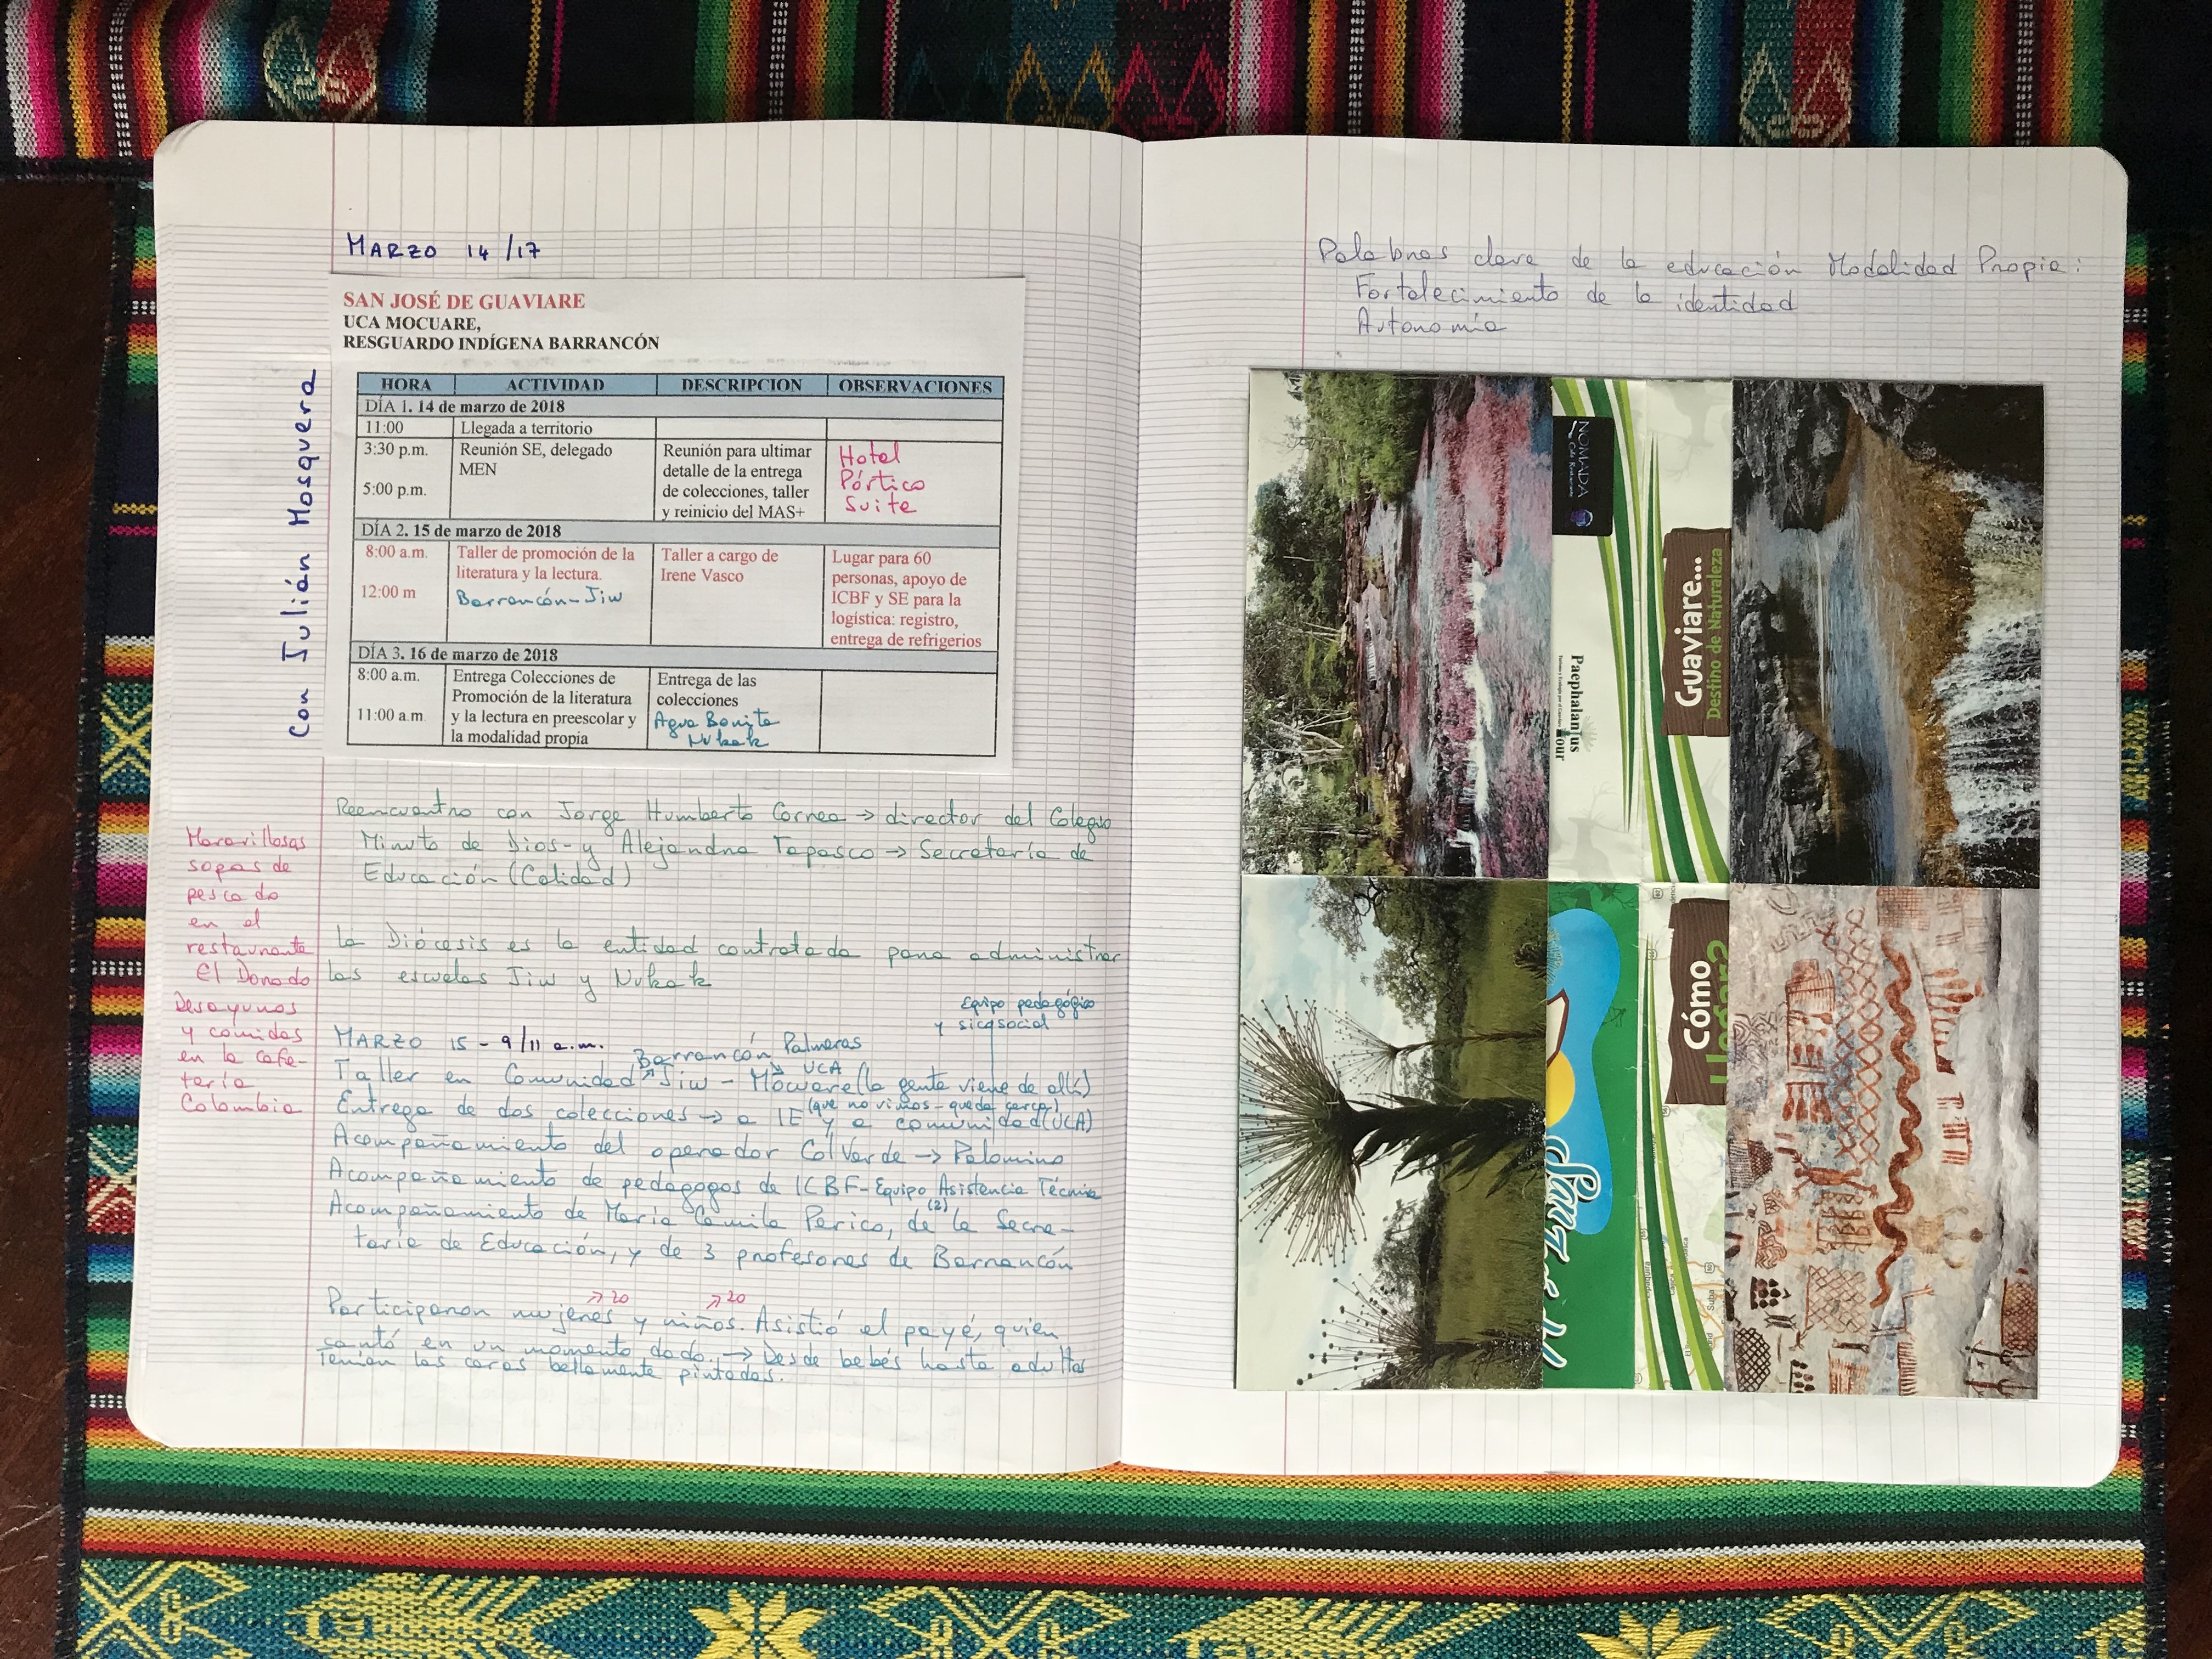 MARZO 14/17
SAN JOSÉ DE GUAVIARE
UCA MOCUARE,
RESGUARDO INDÍGENA BARRANCÓN
Con Julián Mosquera
HORA ACTIVIDAD DESCRIPCION OBSERVACIONES
DÍA 1. 14 de marzo de 2018
11:00 Llegada a territorio
3:30 p.m. Reunión SE, delegado Reunión para ultimar Hotel
MEN detalle de la entrega Pórtico
5:00 p.m. de colecciones, taller Suite
y reinicio del MAS+
DÍA 2. 15 de marzo de 2018
8:00 a.m. Taller de promoción de la Taller a cargo de Lugar para 60
literatura y la lectura. Irene Vasco personas, apoyo de
12:00 m Barrancón-Jiw ICBF y SE para la
logística: registro,
entrega de refrigerios
DÍA 3. 16 de marzo de 2018
8:00 a.m. Entrega Colecciones de Entrega de las
Promoción de la literatura colecciones
11:00 a.m. y la lectura en preescolar y Agua Bonita
la modalidad propia Nukak
Reencuentro con Jorge Humberto Correa → director del Colegio
Minuto de Dios-y Alejandra Tapasco → Secretaría de
Educación (Calidad)
Maravillosas
sopas de
pescado
en el
restaurante
El Dorado
Desayunos
y comidas
en la cafe-
tería
Colombia
La Diócesis es la entidad contratada para administrar
las escuelas Jiw y Nukak
Equipo pedagógico
y sicosocial
MARZO 15 - 9/11 a.m.
Barrancón Palmeras
UCA
Taller en Comunidad Jiw - Mocuare (la gente viene de allí)
(que no vimos - queda cerca)
Entrega de dos colecciones → a IE y a comunidad (UCA)
Acompañamiento del operador ColVerde → Palomino
Acompañamiento de pedagogos de ICBF-Equipo Asistencia Técnica
(2)
Acompañamiento de María Camila Perico, de la Secre-
taría de Educación, y de 3 profesores de Barrancón
↗20 ↗20
Participaron mujeres y niños. Asistió el payé, quien
cantó en un momento dado. → Desde bebés hasta adultos
tenían las caras bellamente pintadas.
Palabras clave de la educación Modalidad Propia:
Fortalecimiento de la identidad
Autonomía
NOMADA
Café Restaurante
Paephalantus
Tour
Guaviare...
Destino de Naturaleza
Cómo
Llegar?
San José del
Suba